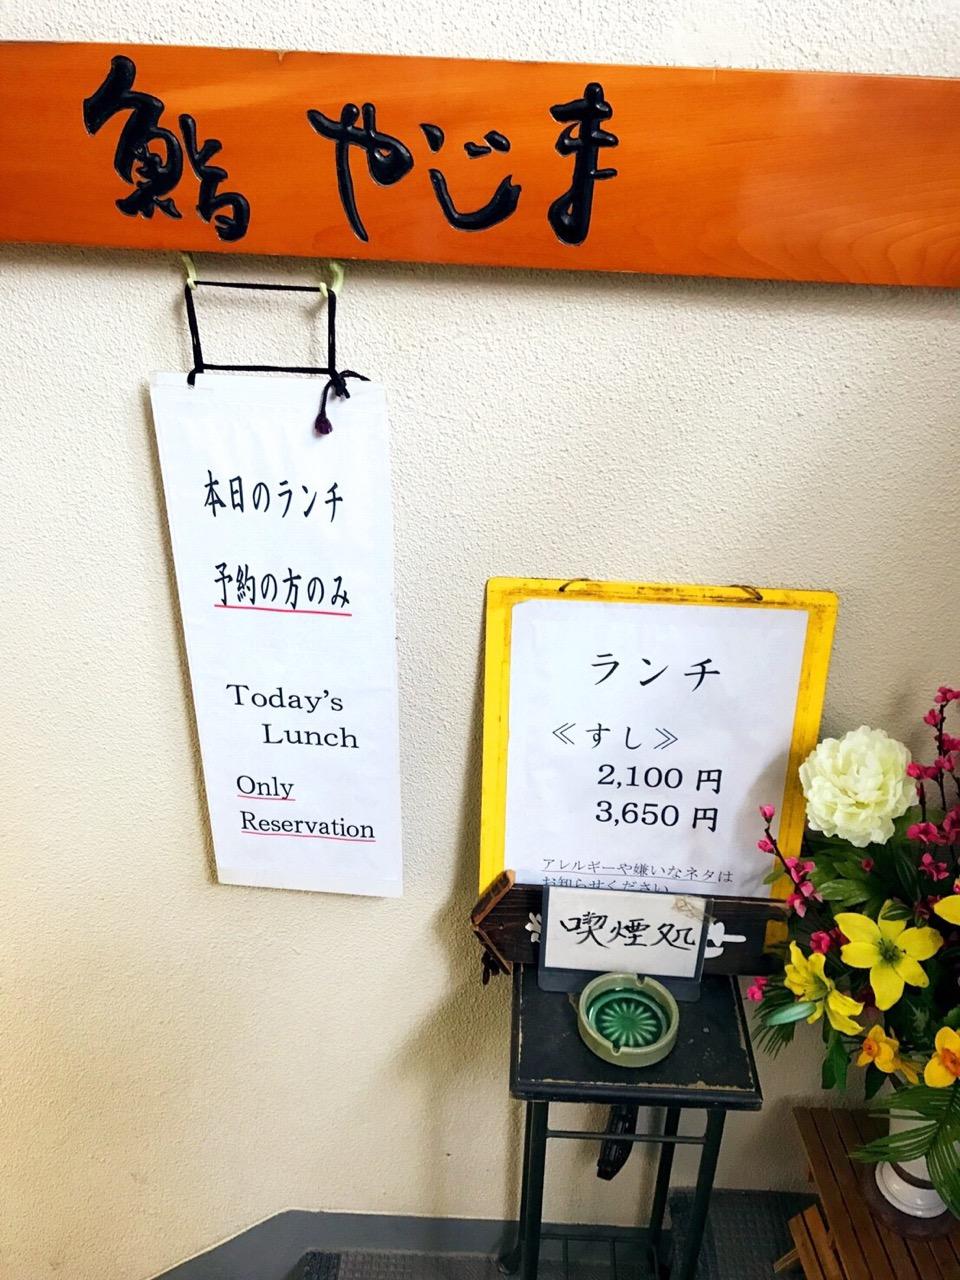 鮨 やじま
本日のランチ
予約の方のみ
Today's
Lunch
Only
Reservation
ランチ
≪すし≫
2,100 円
3,650 円
アレルギーや嫌いなネタは
お知らせください
喫煙処